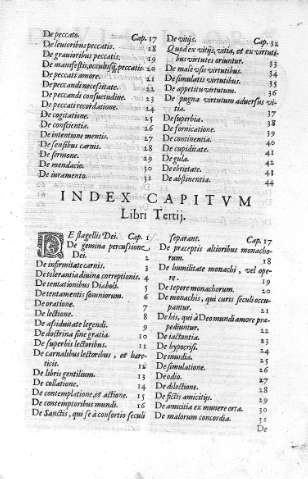 De peccato. Cap. 17
De leuioribus peccatis. 18
De grauioribus peccatis. 19
De manifestis, occultisq; peccatis. 20
De peccati amore. 21
De peccandi necessitate. 22
De peccandi consuetudine. 23
De peccati recordatione. 24
De cogitatione. 25
De conscientia. 26
De intentione mentis. 27
De sensibus carnis. 28
De sermone. 29
De mendacio. 30
De iuramento. 31
De vitijs. Cap. 32
Quod ex vitijs, vitia, et ex virtuti-
bus virtutes oriuntur. 33
De male vsis virtutibus. 34
De simulatis virtutibus. 35
De appetitu virtutum. 36
De pugna virtutum aduersus vi-
tia. 37
De superbia. 38
De fornicatione. 39
De continentia. 40
De cupiditate. 41
De gula. 42
De ebrietate. 43
De abstinentia. 44
INDEX CAPITVM
Libri Tertij.
DE flagellis Dei. Cap. 1
De gemina percussione
Dei. 2
De infirmitate carnis. 3
De tolerantia diuinæ correptionis. 4
De tentationibus Diaboli. 5
De tentamentis somniorum. 6
De oratione. 7
De lectione. 8
De assiduitate legendi. 9
De doctrina sine gratia. 10
De superbis lectoribus. 11
De carnalibus lectoribus, et hære-
ticis. 12
De libris gentilium. 13
De collatione. 14
De contemplatione, et actione. 15
De contemptoribus mundi. 16
De Sanctis, qui se à consortio seculi
separant. Cap. 17
De præceptis altioribus monacho-
rum. 18
De humilitate monachi, vel ope-
re. 19
De tepore monachorum. 20
De monachis, qui curis seculi occu-
pantur. 21
De his, qui à Deo mundi amore præ-
pediuntur. 22
De iactantia. 23
De hypocrisi. 24
De inuidia. 25
De simulatione. 26
De odio. 27
De dilectione. 28
De fictis amicitijs. 29
De amicitia ex munere orta. 30
De malorum concordia. 31
De